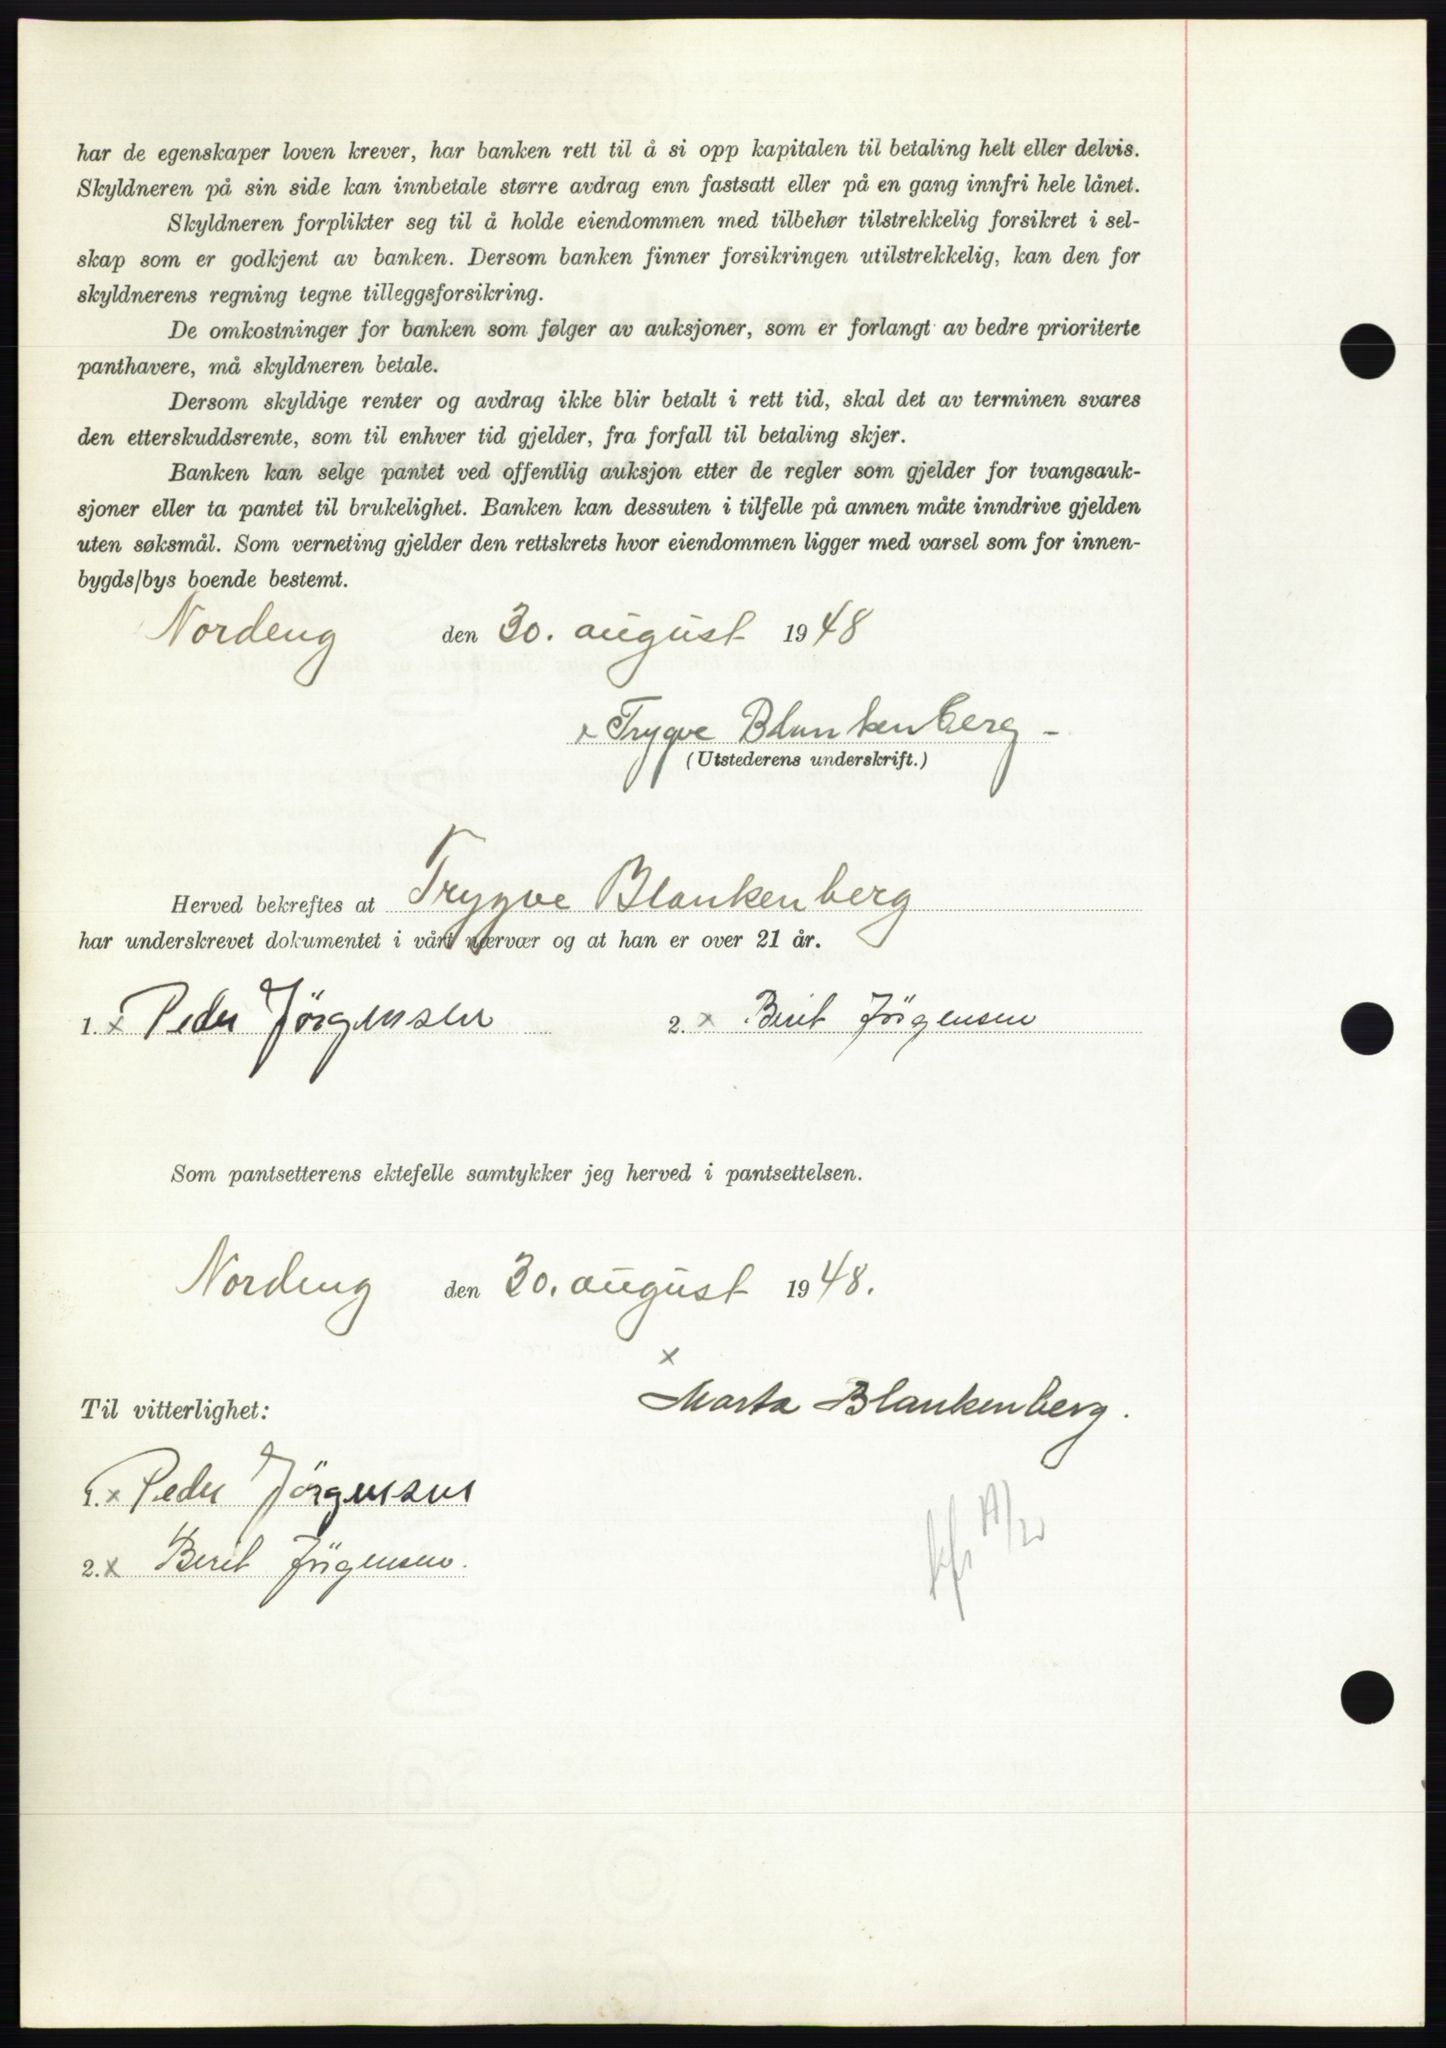 har de egenskaper loven krever, har banken rett til å si opp kapitalen til betaling helt eller delvis.
Skyldneren på sin side kan innbetale større avdrag enn fastsatt eller på en gang innfri hele lånet.
Skyldneren forplikter seg til å holde eiendommen med tilbehør tilstrekkelig forsikret i sel-
skap som er godkjent av banken. Dersom banken finner forsikringen utilstrekkelig, kan den for
skyldnerens regning tegne tilleggsforsikring.
De omkostninger for banken som følger av auksjoner, som er forlangt av bedre prioriterte
panthavere, må skyldneren betale.
Dersom skyldige renter og avdrag ikke blir betalt i rett tid, skal det av terminen svares
den etterskuddsrente, som til enhver tid gjelder, fra forfall til betaling skjer.
Banken kan selge pantet ved offentlig auksjon etter de regler som gjelder for tvangsauk-
sjoner eller ta pantet til brukelighet. Banken kan dessuten i tilfelle på annen måte inndrive gjelden
uten søksmål. Som verneting gjelder den rettskrets hvor eiendommen ligger med varsel som for innen-
bygds/bys boende bestemt.
Nordeng den 30. august 1948
x Trygve Blankenberg
(Utstederens underskrift.)
Herved bekreftes at Trygve Blankenberg
har underskrevet dokumentet i vårt nærvær og at han er over 21 år.
1. x Peder Jörgensen 2. x Berit Jörgensen
Som pantsetterens ektefelle samtykker jeg herved i pantsettelsen.
Nordeng den 30. august 1948.
x
Til vitterlighet: Marta Blankenberg.
1. x Peder Jörgensen
2. x Berit Jörgensen.